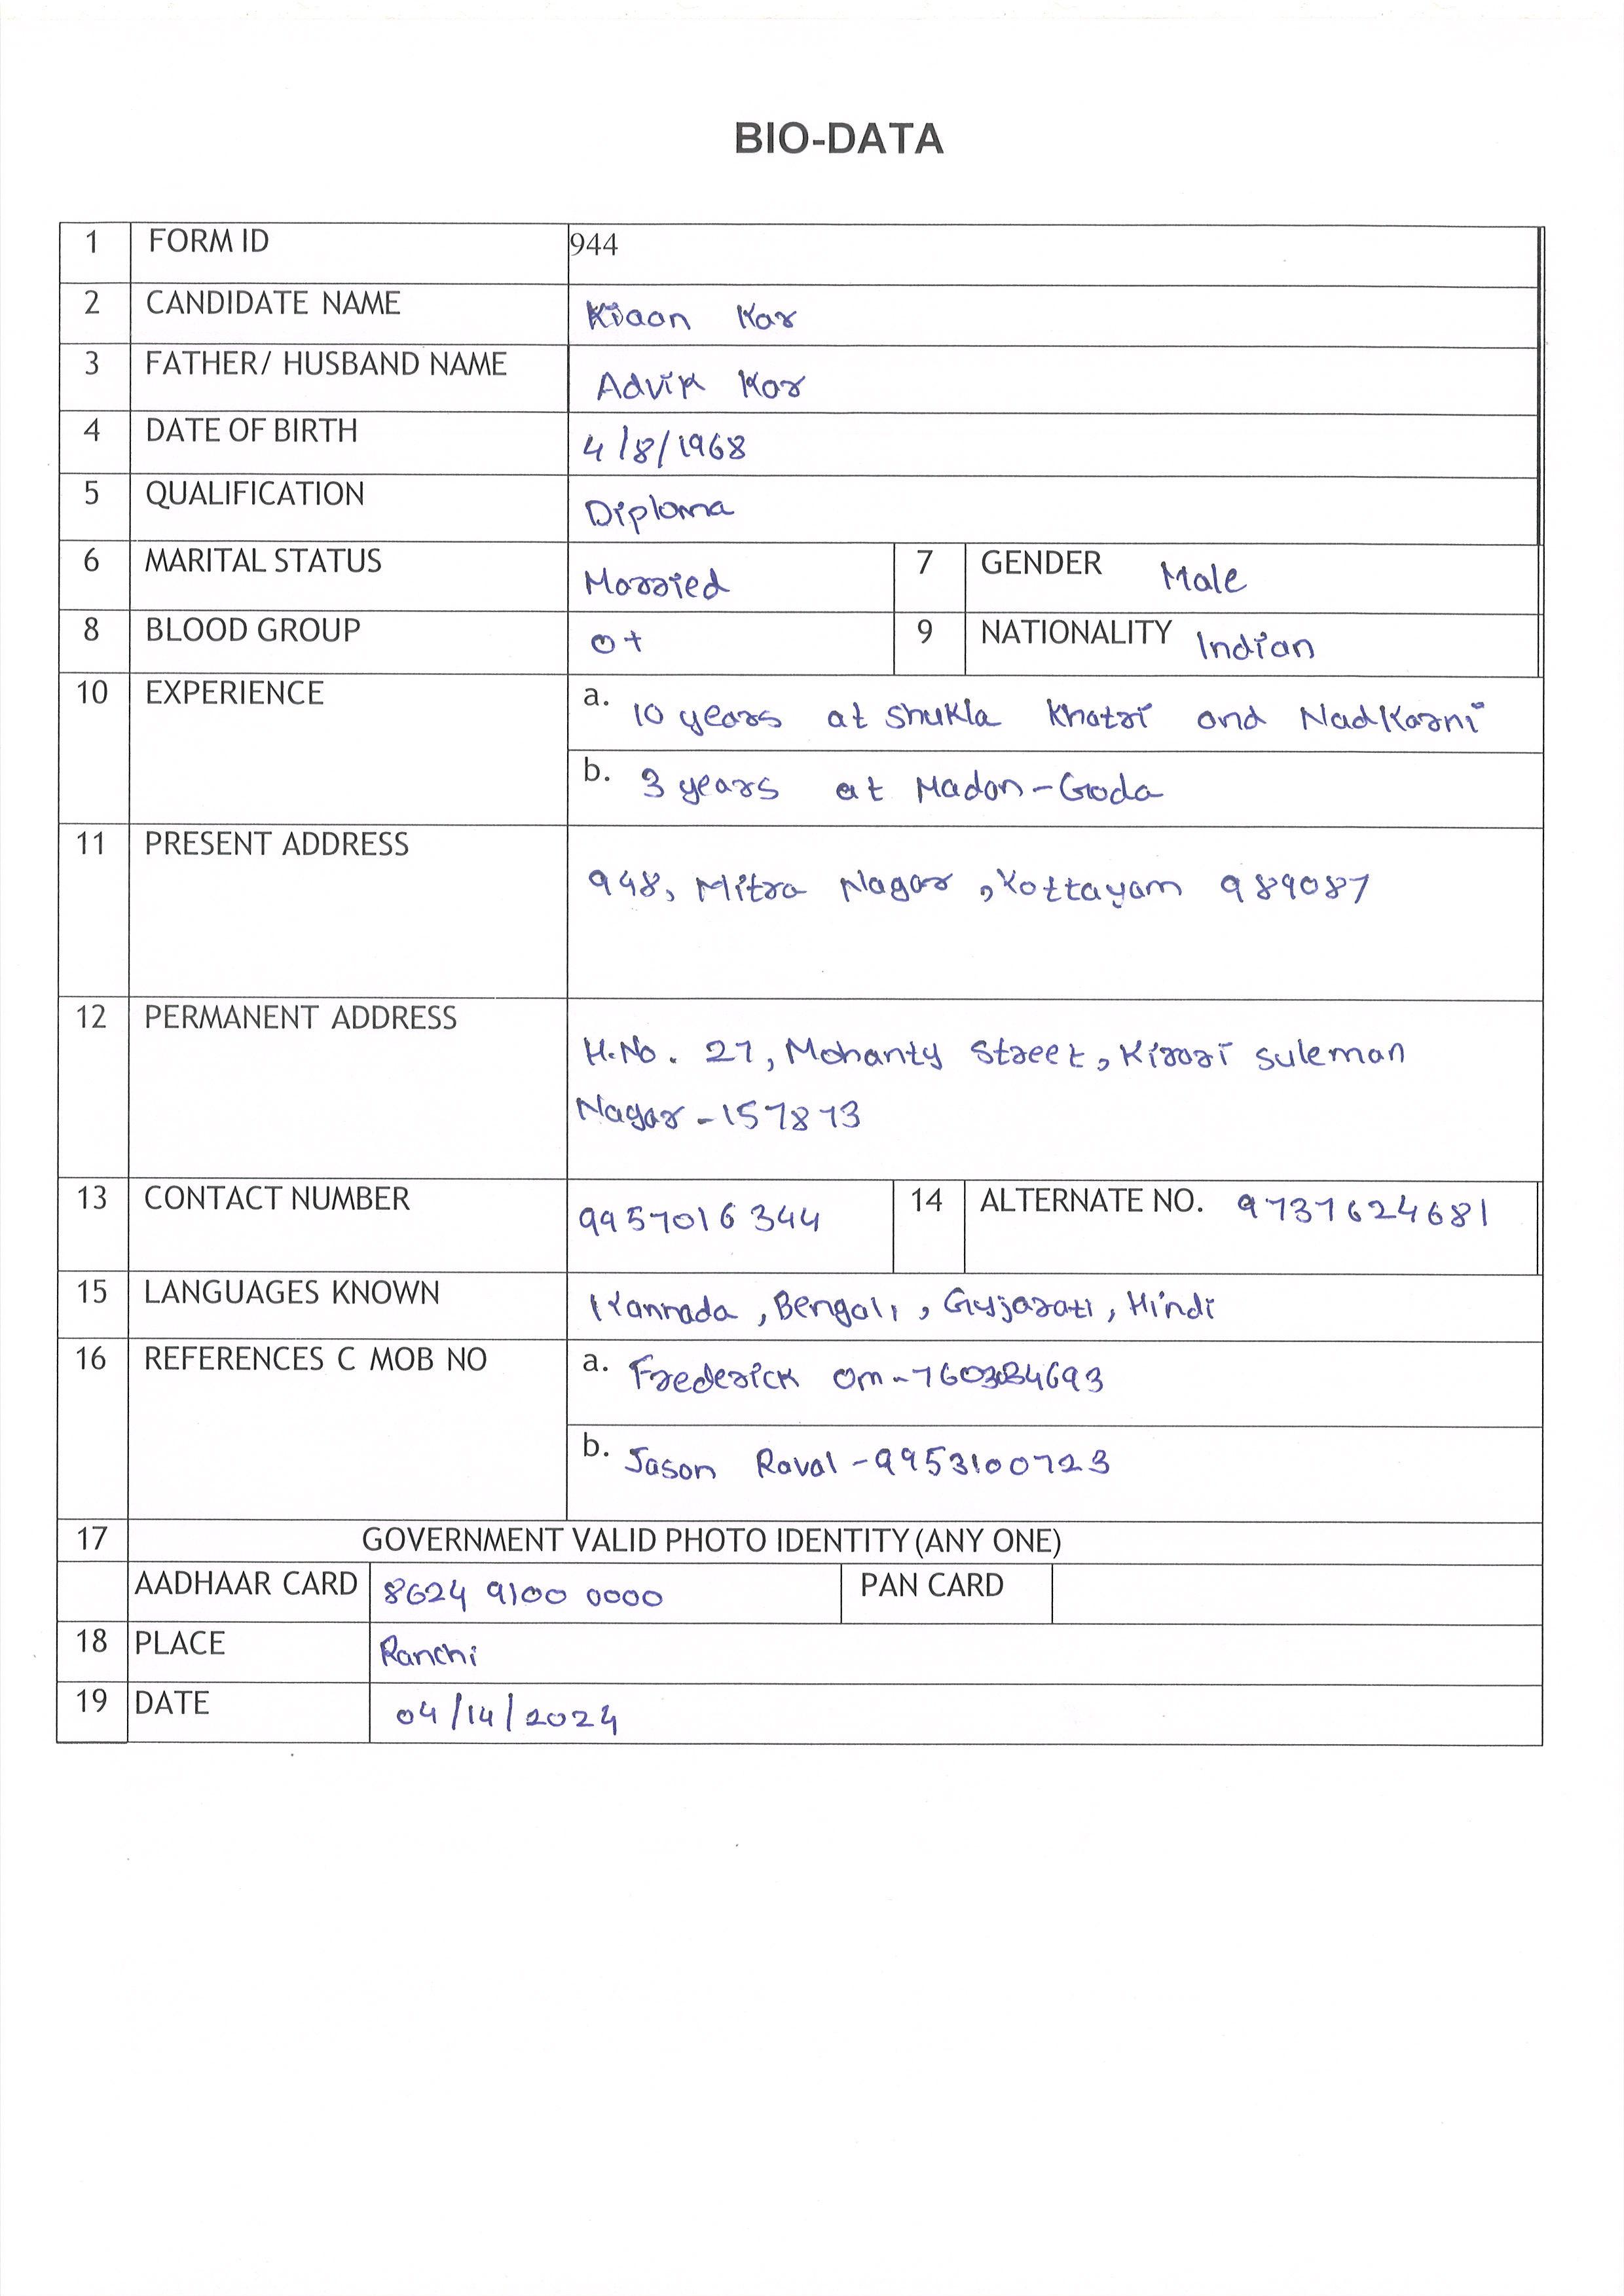 BIO-DATA
1 FORM ID 944
2 CANDIDATE NAME Kiaan Kar
3 FATHER/ HUSBAND NAME Advik Kar
4 DATE OF BIRTH 4/8/1968
5 QUALIFICATION Diploma
6 MARITAL STATUS Married 7 GENDER Male
8 BLOOD GROUP O+ 9 NATIONALITY Indian
10 EXPERIENCE a. 10 years at Shukla Khatri and Nadkarni
b. 3 years at Madan-Goda
11 PRESENT ADDRESS
948, Mitra Nagar, Kottayam 989087
12 PERMANENT ADDRESS
H.No. 27, Mohanty Street, Kirari Suleman
Nagar-157873
13 CONTACT NUMBER 9957016344 14 ALTERNATE NO. 9737624681
15 LANGUAGES KNOWN Kannada, Bengali, Gujarati, Hindi
16 REFERENCES C MOB NO a. Frederick Om-
b. Jason Raval-9953100723
17 GOVERNMENT VALID PHOTO IDENTITY (ANY ONE)
AADHAAR CARD 8624 9100 0000 PAN CARD
18 PLACE Ranchi
19 DATE 04/14/2024